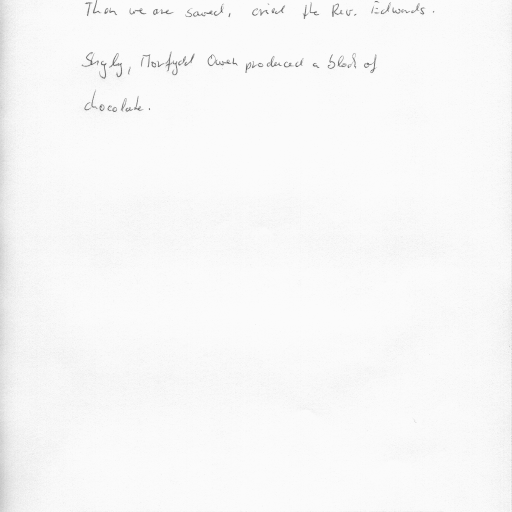 Then we are saved, cried the Rev. Edwards.
Shyly, Morfydd Owen produced a block of
chocolate.